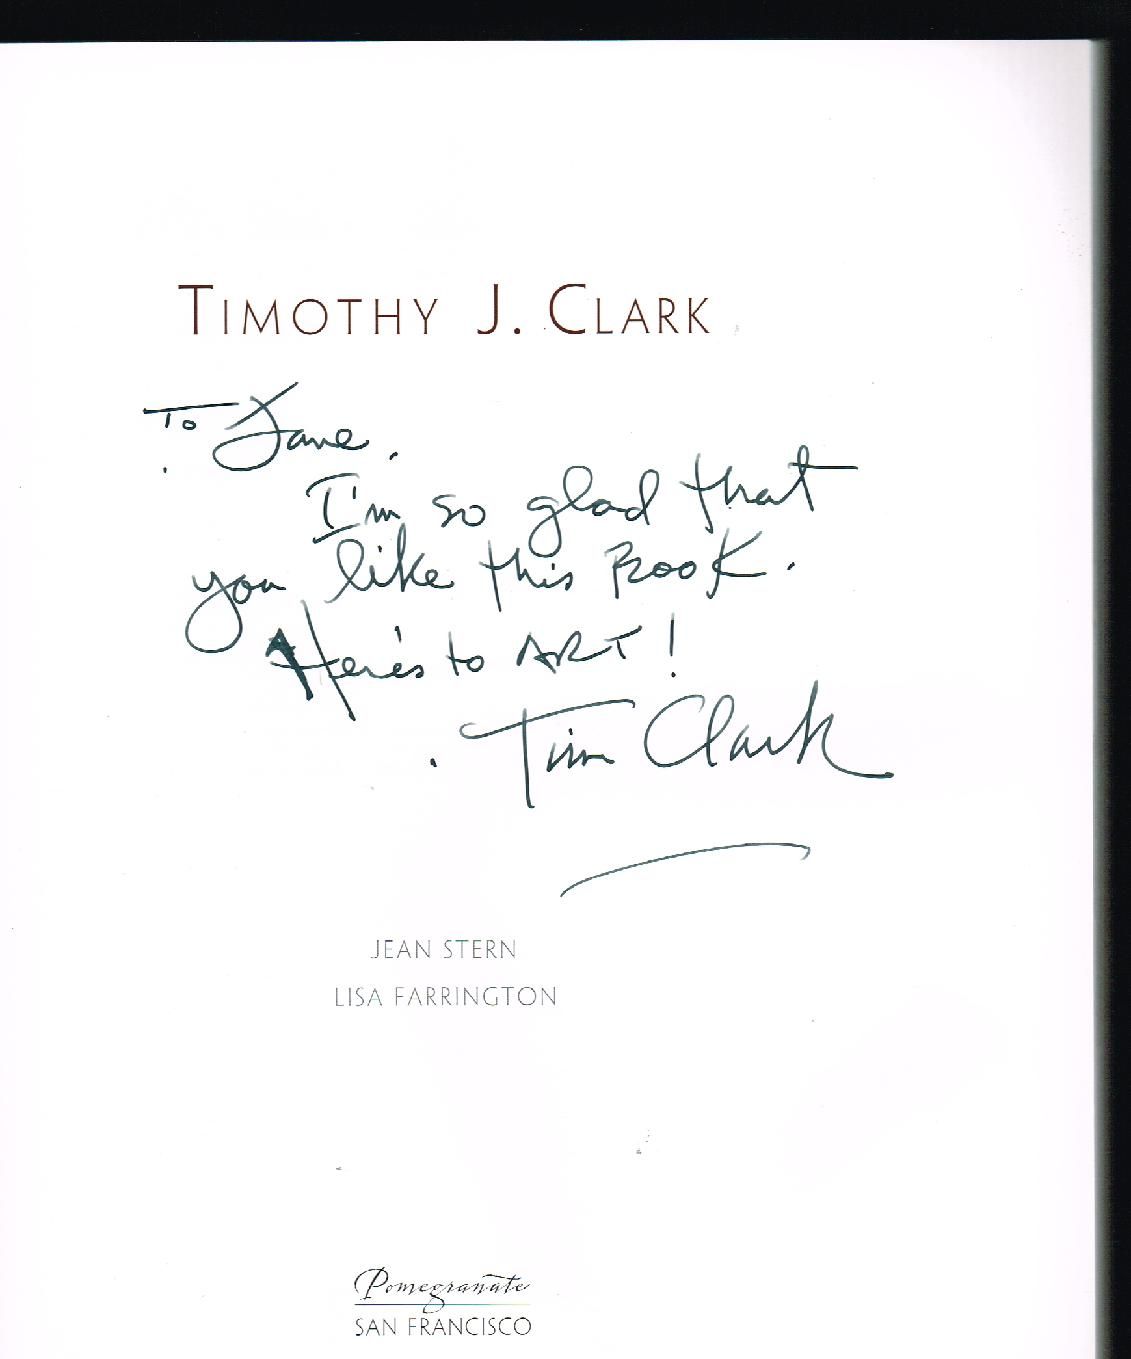 TIMOTHY J. CLARK
To Jane,
I'm so glad that
you like this Book.
Here's to ART!
Tim Clark
JEAN STERN
LISA FARRINGTON
Pomegranate
SAN FRANCISCO